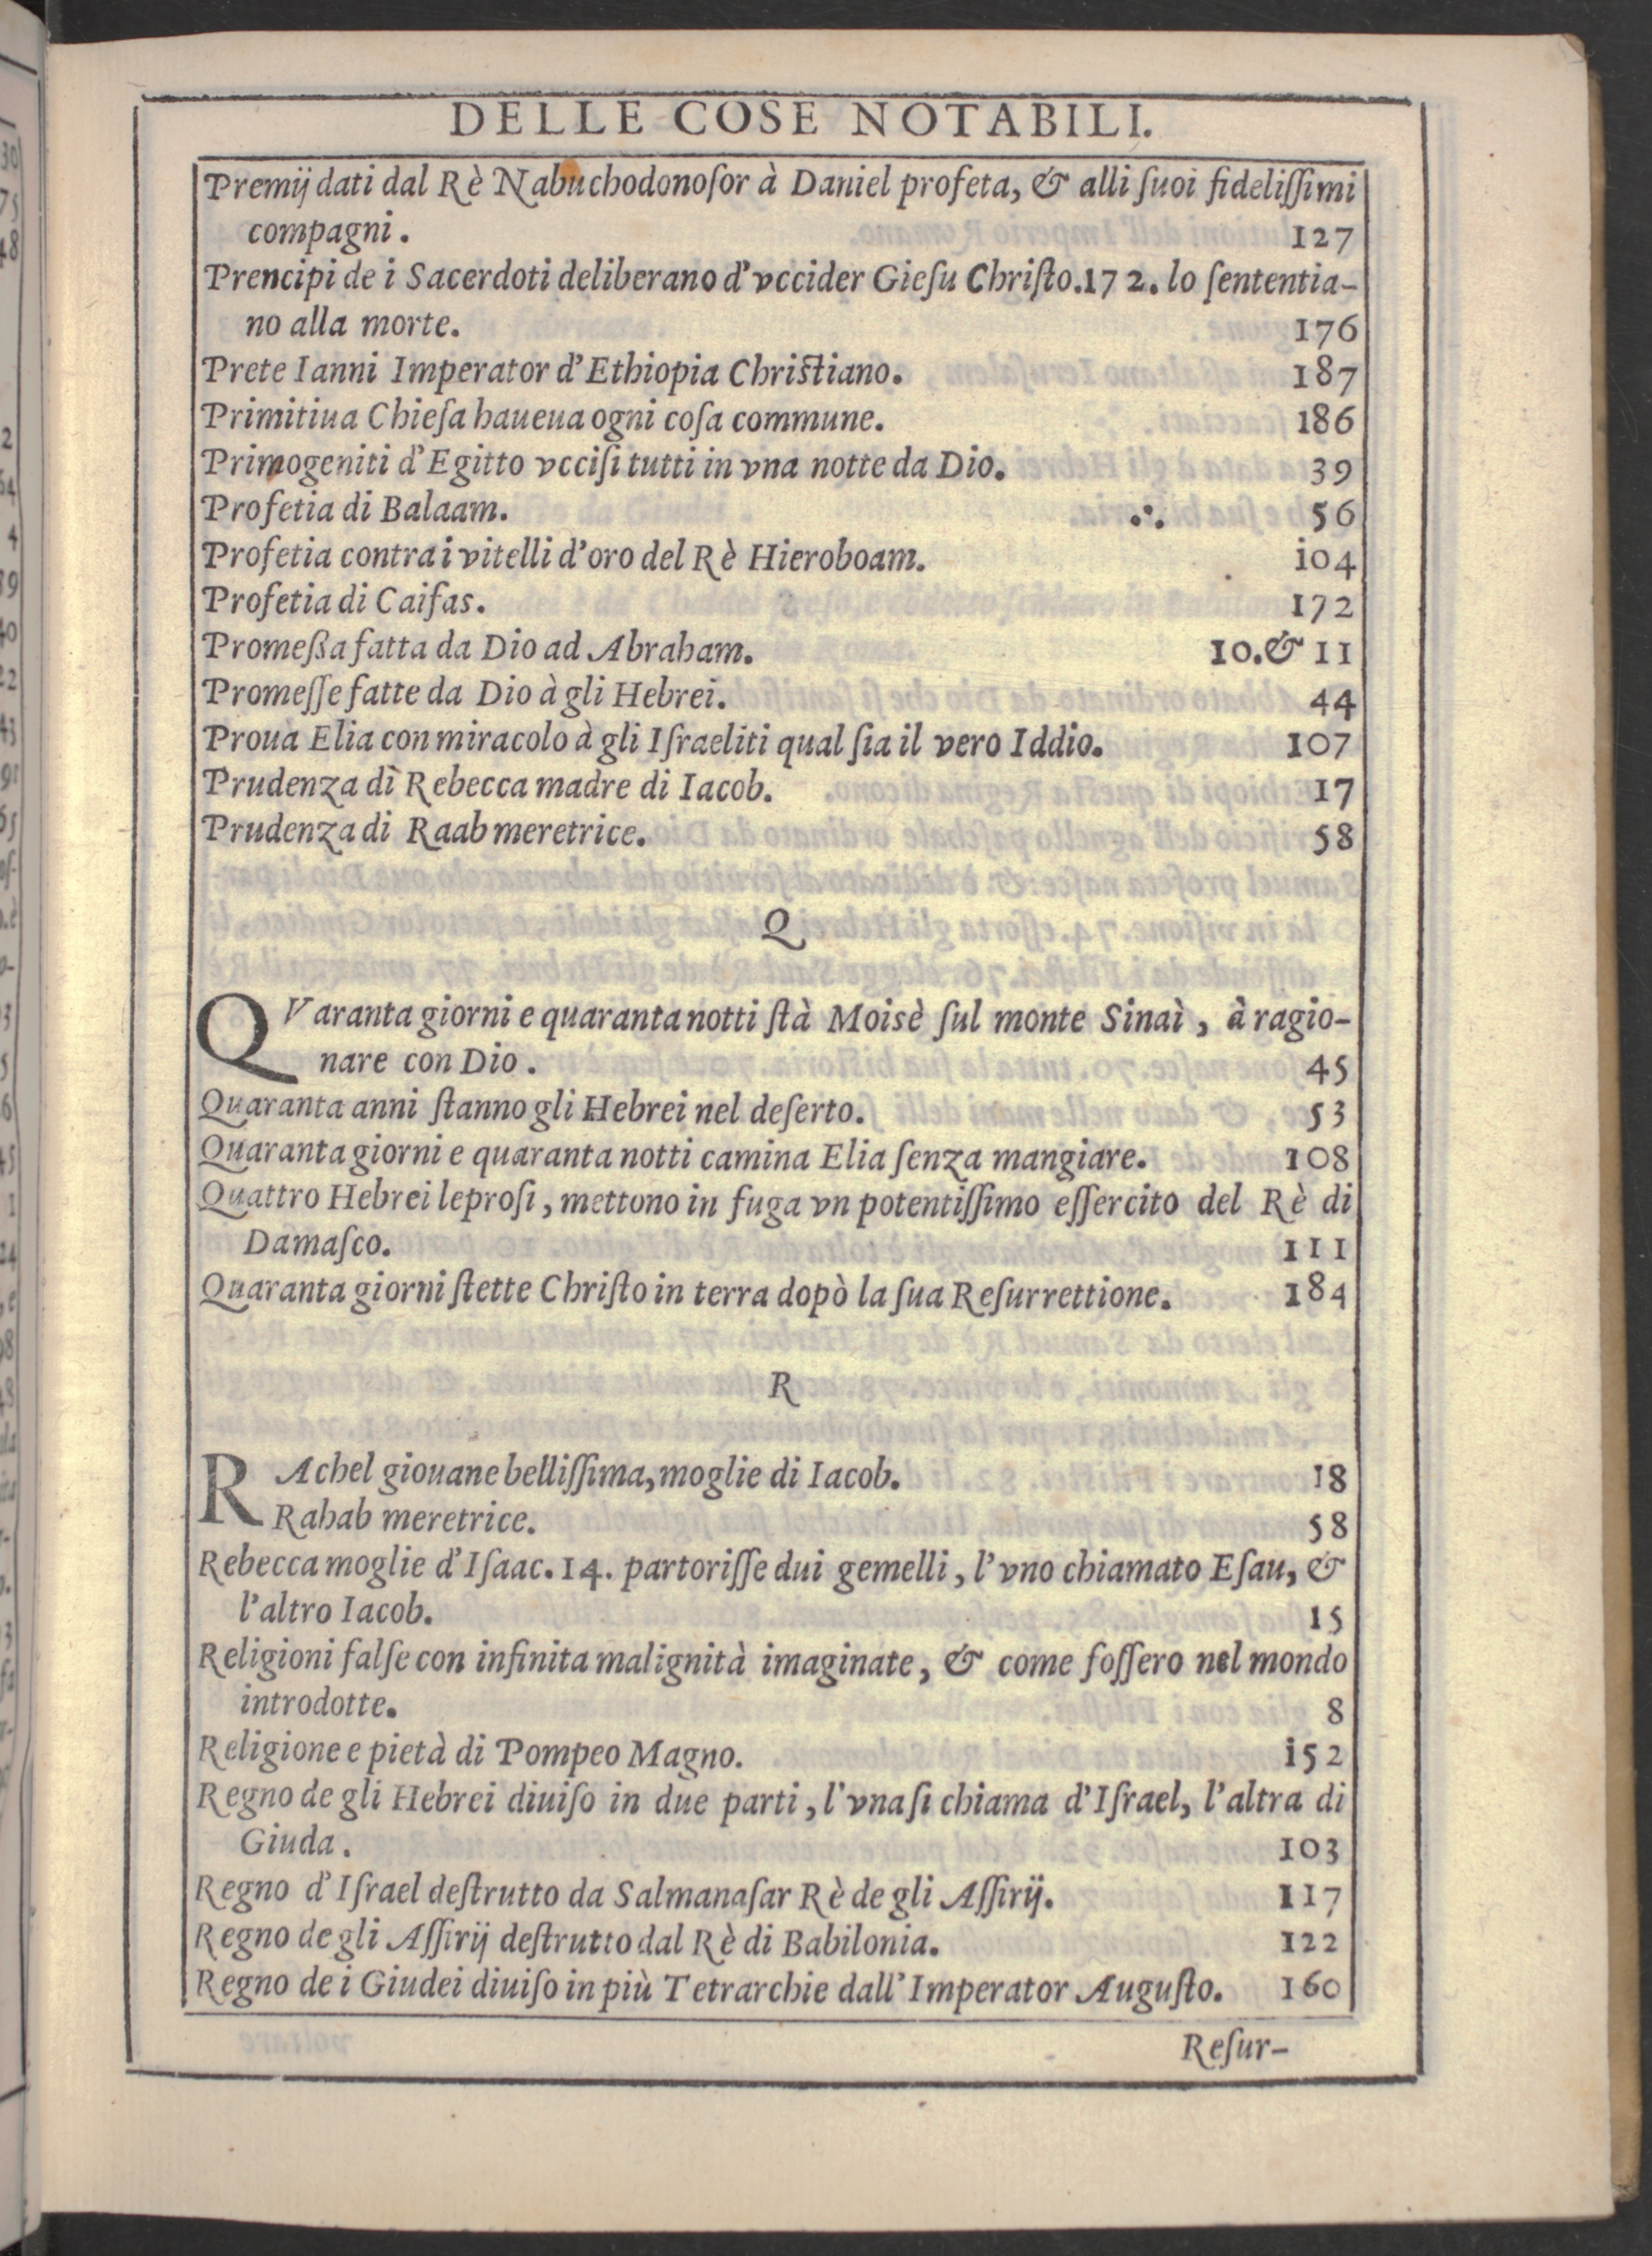 DELLE COSE NOTABILI.
Premij dati dal Rè Nabuchodonoſor à Daniel profeta, & alli ſuoi fideliſſimi
compagni. 127
Prencipi de i Sacerdoti deliberano d'vccider Gieſu Chriſto.172. lo ſententia-
no alla morte. 176
Prete Ianni Imperator d'Ethiopia Chriſtiano. 187
Primitiua Chieſa haueua ogni coſa commune. 186
Primogeniti d'Egitto vcciſi tutti in vna notte da Dio. 39
Profetia di Balaam. 56
Profetia contra i vitelli d'oro del Rè Hieroboam. i04
Profetia di Caifas. 172
Promeßa fatta da Dio ad Abraham. 10.& 11
Promeſſe fatte da Dio à gli Hebrei. 44
Proua Elia con miracolo à gli Iſraeliti qual ſia il vero Iddio. 107
Prudenza dì Rebecca madre di Iacob. 17
Prudenza di Raab meretrice. 58
Q
QVaranta giorni e quaranta notti ſtà Moisè ſul monte Sinaì, à ragio-
nare con Dio. 45
Quaranta anni ſtanno gli Hebrei nel deſerto. 53
Quaranta giorni e quaranta notti camina Elia ſenza mangiare. 108
Quattro Hebrei leproſi, mettono in fuga vn potentiſſimo eſſercito del Rè di
Damaſco. 111
Quaranta giorni ſtette Chriſto in terra dopò la ſua Reſurrettione. 184
R
RAchel giouane belliſſima, moglie di Iacob. 18
Rahab meretrice. 58
Rebecca moglie d'Iſaac. 14. partoriſſe dui gemelli, l'vno chiamato Eſau, &
l'altro Iacob. 15
Religioni falſe con infinita malignità imaginate, & come foſſero nel mondo
introdotte. 8
Religione e pietà di Pompeo Magno. i52
Regno de gli Hebrei diuiſo in due parti, l'vna ſi chiama d'Iſrael, l'altra di
Giuda. 103
Regno d'Iſrael deſtrutto da Salmanaſar Rè de gli Aſſirij. 117
Regno de gli Aſſirij deſtrutto dal Rè di Babilonia. 122
Regno de i Giudei diuiſo in più Tetrarchie dall'Imperator Auguſto. 160
Reſur-